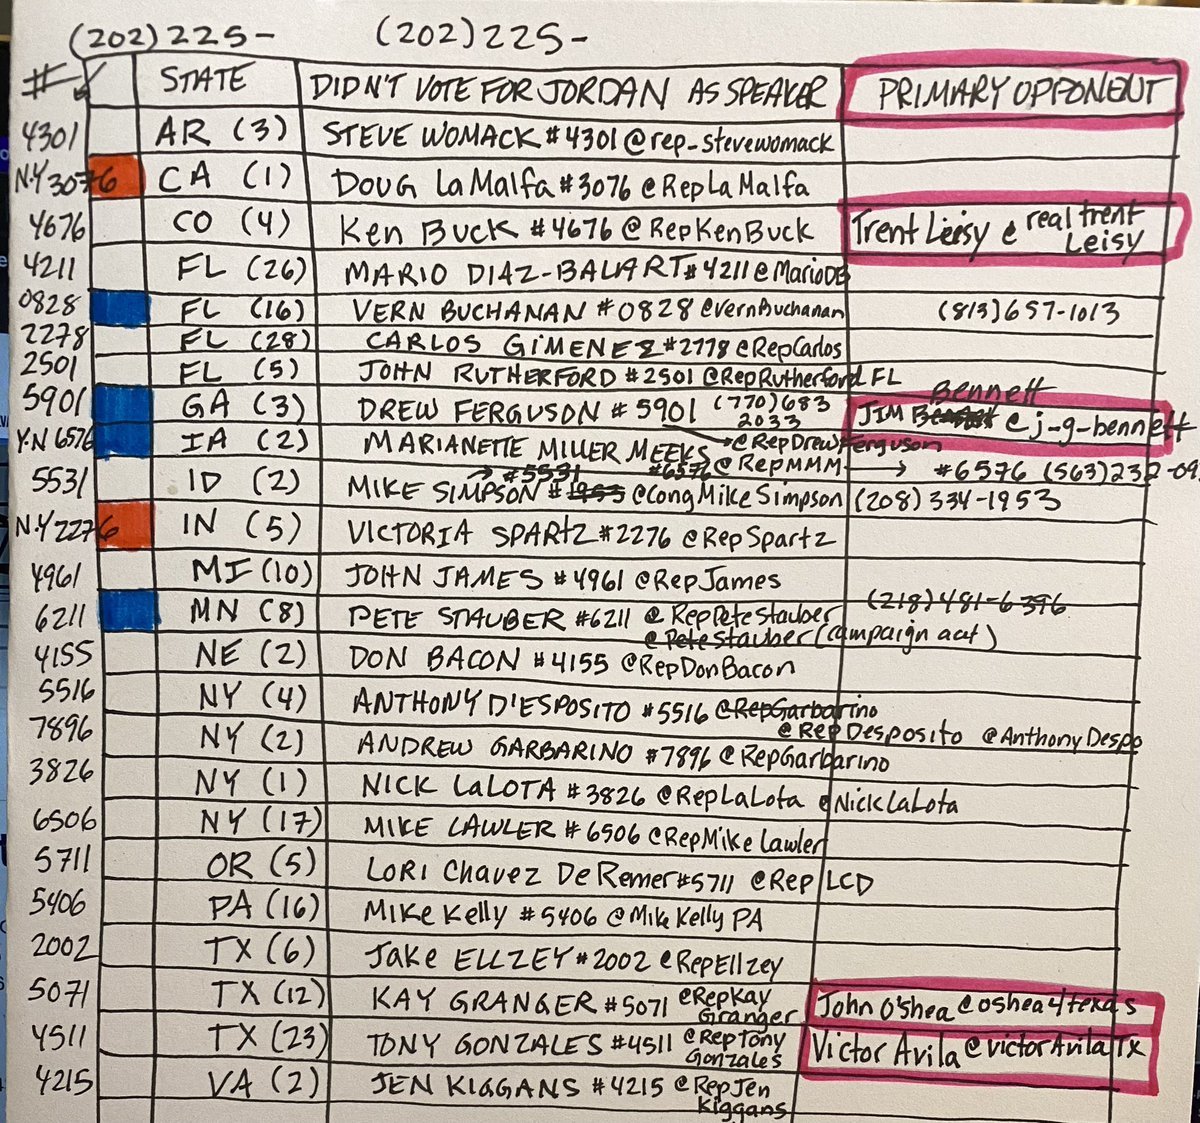 (202)225- (202)225-
# STATE DIDN'T VOTE FOR JORDAN AS SPEAKER PRIMARY OPPONENT
4301 AR (3) STEVE WOMACK #4301 @rep_stevewomack
N.Y 3076 CA (1) DOUG LaMalfa #3076 @RepLaMalfa
4676 CO (4) Ken BUCK #4676 @RepKenBuck Trent Leisy @ real trent Leisy
4211 FL (26) MARIO DIAZ-BALART #4211 @MarioDB
0828 FL (16) VERN BUCHANAN #0828 @VernBuchanan (813)657-1013
2278 FL (28) CARLOS GIMENEZ #2778 @RepCarlos
2501 FL (5) JOHN RUTHERFORD #2501 @RepRutherford FL
5901 GA (3) DREW FERGUSON #5901 (770)683 2033 @RepDrewFerguson JIM Bennett @j_g_bennett
Y.N 6576 IA (2) MARIANETTE MILLER MEEKS #6576 @RepMMM → #6576 (563)232-09
5531 ID (2) MIKE SIMPSON #1953 → #5531 @CongMikeSimpson (208) 334-1953
N.Y 2276 IN (5) VICTORIA SPARTZ #2276 @RepSpartz
4961 MI (10) JOHN JAMES #4961 @RepJames
6211 MN (8) PETE STAUBER #6211 @RepPeteStauber (218)481-6396
@PeteStauber (campaign acct)
4155 NE (2) DON BACON #4155 @RepDonBacon
5516 NY (4) ANTHONY D'ESPOSITO #5516 @RepGarbarino
@RepDesposito @AnthonyDespo
7896 NY (2) ANDREW GARBARINO #7896 @RepGarbarino
3826 NY (1) NICK LaLOTA #3826 @RepLaLota @NickLaLota
6506 NY (17) MIKE LAWLER #6506 @RepMikeLawler
5711 OR (5) LORI Chavez DeRemer #5711 @RepLCD
5406 PA (16) Mike Kelly #5406 @MikeKellyPA
2002 TX (6) Jake ELLZEY #2002 @RepEllzey
5071 TX (12) KAY GRANGER #5071 @RepKay Granger John O'Shea @oshea4texas
4511 TX (23) TONY GONZALES #4511 @RepTony Gonzales Victor Avila @victorAvilaTx
4215 VA (2) JEN KIGGANS #4215 @RepJen Kiggans